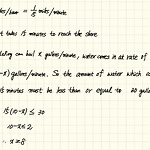 les/hour = 1/5 miles/minute
t takes 15 minutes to reach the shore.
can bail x gallons/minute, water comes in at rate of
-x) gallons/minute. So the amount of water which c
15 minutes must be less than or equal to 30 gallo
15(10-x) ≤ 30
10-x ≤ 2
∴ x ≥ 8